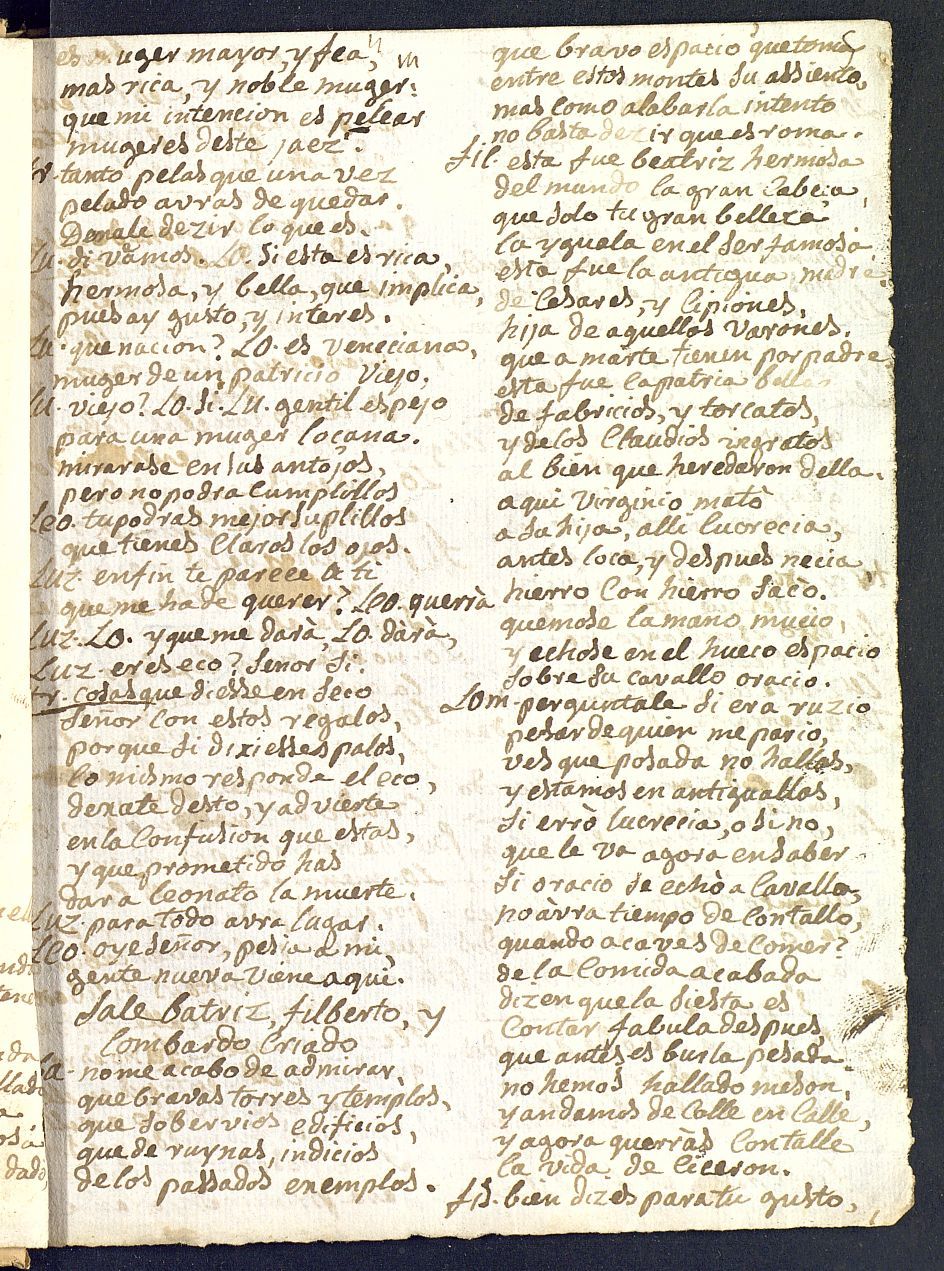 es muger mayor, y fea,
mas rica, y noble muger:
que mi intencion es pelear
mugeres deste jaez.
tr. tanto pelas que una vez
pelado avras de quedar.
Dexale dezir lo que es.
Lu. di vamos. LO. Si esta es rica,
hermosa, y bella, que implica,
pues ay gusto, y interes.
Lu. que nacion? LO. es veneciana,
muger de un patricio viejo,
Lu. viejo? LO. Si. LU. gentil espejo
para una muger loçana.
mirarase en sus antojos,
pero no podra cumplillos
Leo. tu podras mejor suplillos
que tienes claros los ojos.
Luz. enfin te parece a ti
que me ha de querer? Leo. querrà
Luz. LO. y que me darà, LO. dàrà,
Luz. eres eco? Señor Si.
tr. cosas que diesse en seco
Señor con estos regalos,
porque si dixiesses palos,
lo mismo responde el eco,
dexate desto, y advierte
en la confusion que estas,
y que prometido has
dar a leonato la muerte.
Luz. para todo avra lugar.
Leo. oye señor, pesia a mi,
gente nueva viene aqui.
Sale batriz, filberto, y
lombardo criado
no me acabo de admirar,
que bravas torres y templos,
que sobervios edificios,
que de ruynas, indicios
de los passados exemplos.
que bravo espacio que toma
entre estos montes su assiento,
mas como alabarla intento
no basta dezir que es roma.
fil. esta fue beatriz hermosa
del mundo la gran cabeça,
que solo tu gran belleza
la yguala en el ser famosa
esta fue la antigua madre
de Cesares, y Cipiones,
hija de aquellos varones.
que a marte tienen por padre
esta fue la patria bella
de fabricios, y torcatos,
y de los Claudios ingratos
al bien que heredaron della.
aqui virginio matò
a su hija, alli lucrecia,
antes loca, y despues necia
hierro con hierro sacò.
quemose la mano, mucio,
y echose en el hueco espacio
sobre su cavallo oracio.
LOm. perguntale si era ruzio
pesar de quien me pario,
ves que posada no hallas,
y estamos en antiguallas,
si errò lucrecia, o si no,
que le va agora en saber
si oracio se echò a cavallo,
no àvra tiempo de contallo,
quando acaves de comer?
de la comida acabada
dizen que la siesta es
contar fabula despues,
que antes es burla pesada
no hemos hallado meson,
y andamos de calle en calle,
y agora querràs contalle
la vida de Ciceron.
fil. bien dizes para tu gusto,